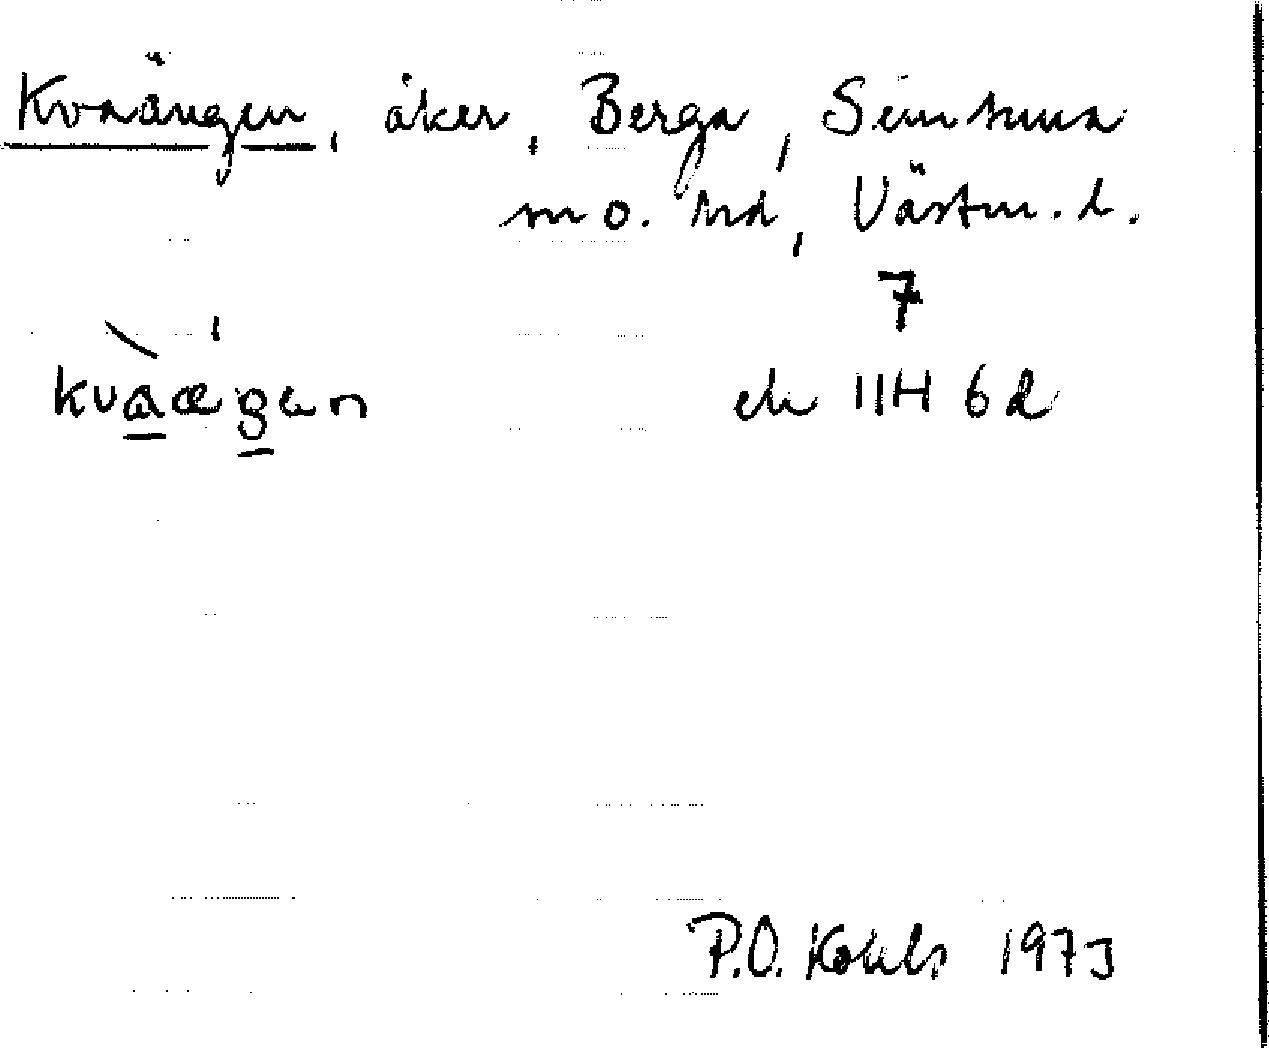 Kvaängen, åker, Berga, Simtuna
sn o. hd, Västm. l.
7
kvaægen
ek 11H 6d
P.O. Kohls 1973